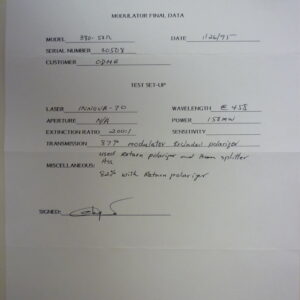 MODULATOR FINAL DATA
MODEL 380-52R DATE 1/26/95
SERIAL NUMBER 30508
CUSTOMER ODME
TEST SET-UP
LASER INNOVA-90 WAVELENGTH @ 458
APERTURE N/A POWER 150MW
EXTINCTION RATIO 200:1 SENSITIVITY
TRANSMISSION 87% modulator Included polarizer
used Return polarizer and Beam splitter
MISCELLANEOUS:
82% with Return polarizer
SIGNED: